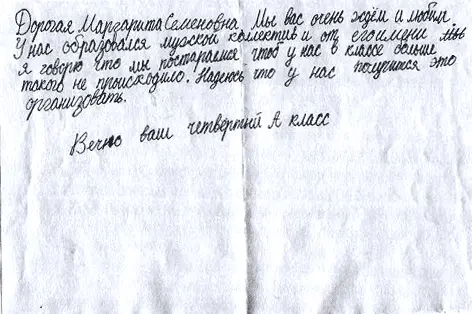 Дорогая Маргарита Семеновна. Мы вас очень ждём и любим.
У нас образовался мужской колектив и от его имени
я говорю что мы постараемся чтоб у нас в классе больше
такого не происходило. Надеюсь что у нас получится это
организовать.
Вечно ваш четвертый А класс